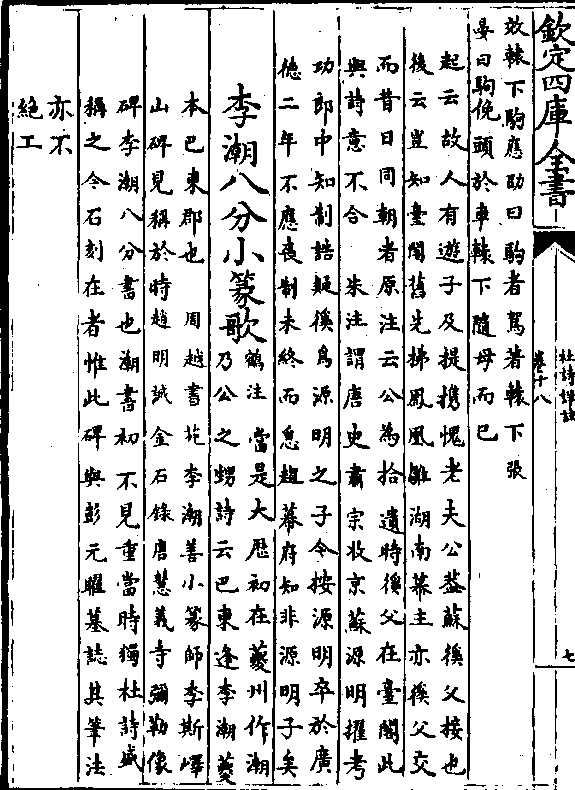 欽定四庫全書
杜詩詳註
卷十八
七
效轅下駒應劭曰駒者駕著轅下張
晏曰駒俛頭於車轅下隨母而已
起云故人有遊子及提攜愧老夫公葢蘇徯父接也
後云豈知臺閣舊先拂鳳凰雛湖南幕主亦徯父交
而昔日同朝者原注云公為拾遺時徯父在臺閣此
與詩意不合 朱注謂唐史肅宗收京蘇源明擢考
功郎中知制誥疑徯為源明之子今按源明卒於廣
德二年不應喪制未終而急趨幕府知非源明子矣
李潮八分小篆歌
鶴注 當是大厯初在夔州作潮
乃公之甥詩云巴東逢李潮夔
本巴東郡也 周越書苑李潮善小篆師李斯嶧
山碑見稱於時趙明誠金石錄唐慧義寺彌勒像
碑李潮八分書也潮書初不見重當時獨杜詩盛
稱之今石刻在者惟此碑與彭元曜墓誌其筆法
亦不
絕工